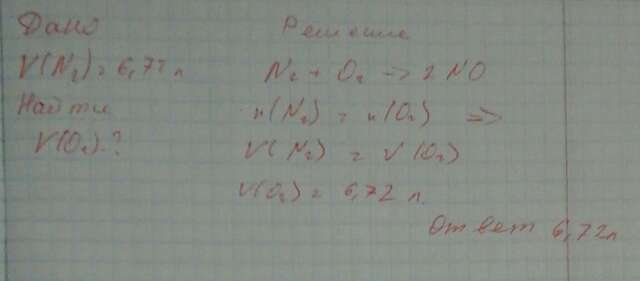 Дано
V(N₂) = 6,72 л
Найти
V(O₂)-?
Решение
N₂ + O₂ -> 2 NO
n(N₂) = n(O₂) =>
V(N₂) = V(O₂)
V(O₂) = 6,72 л.
Ответ 6,72л